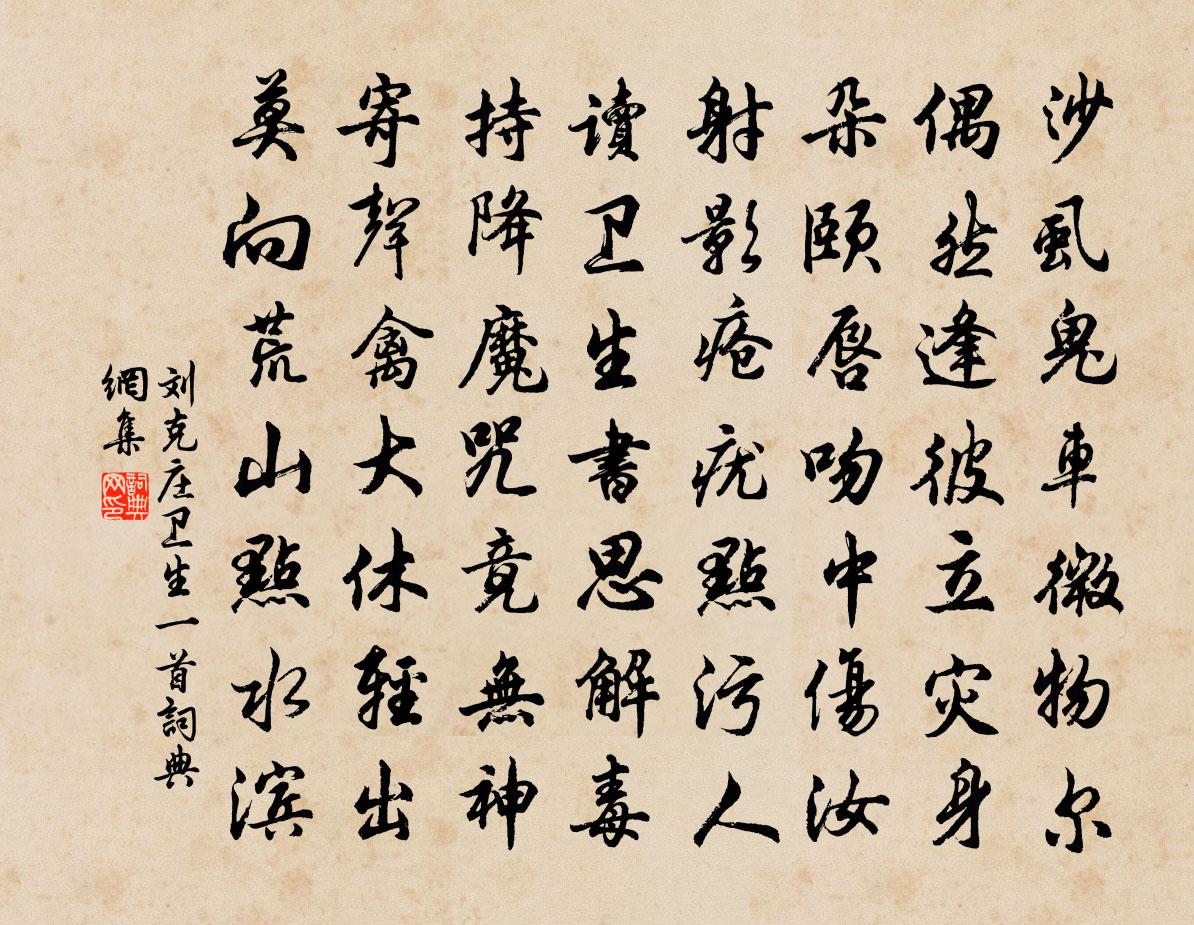 沙虱鬼車微物尔
偶然逢彼立灾身
朵頤唇吻中傷汝
射影疮疣點污人
讀卫生書思解毒
持降魔咒竟無神
寄聲禽大休輕出
莫向荒山點水滨
刘克庄卫生一首詞典
網集
詞典网印